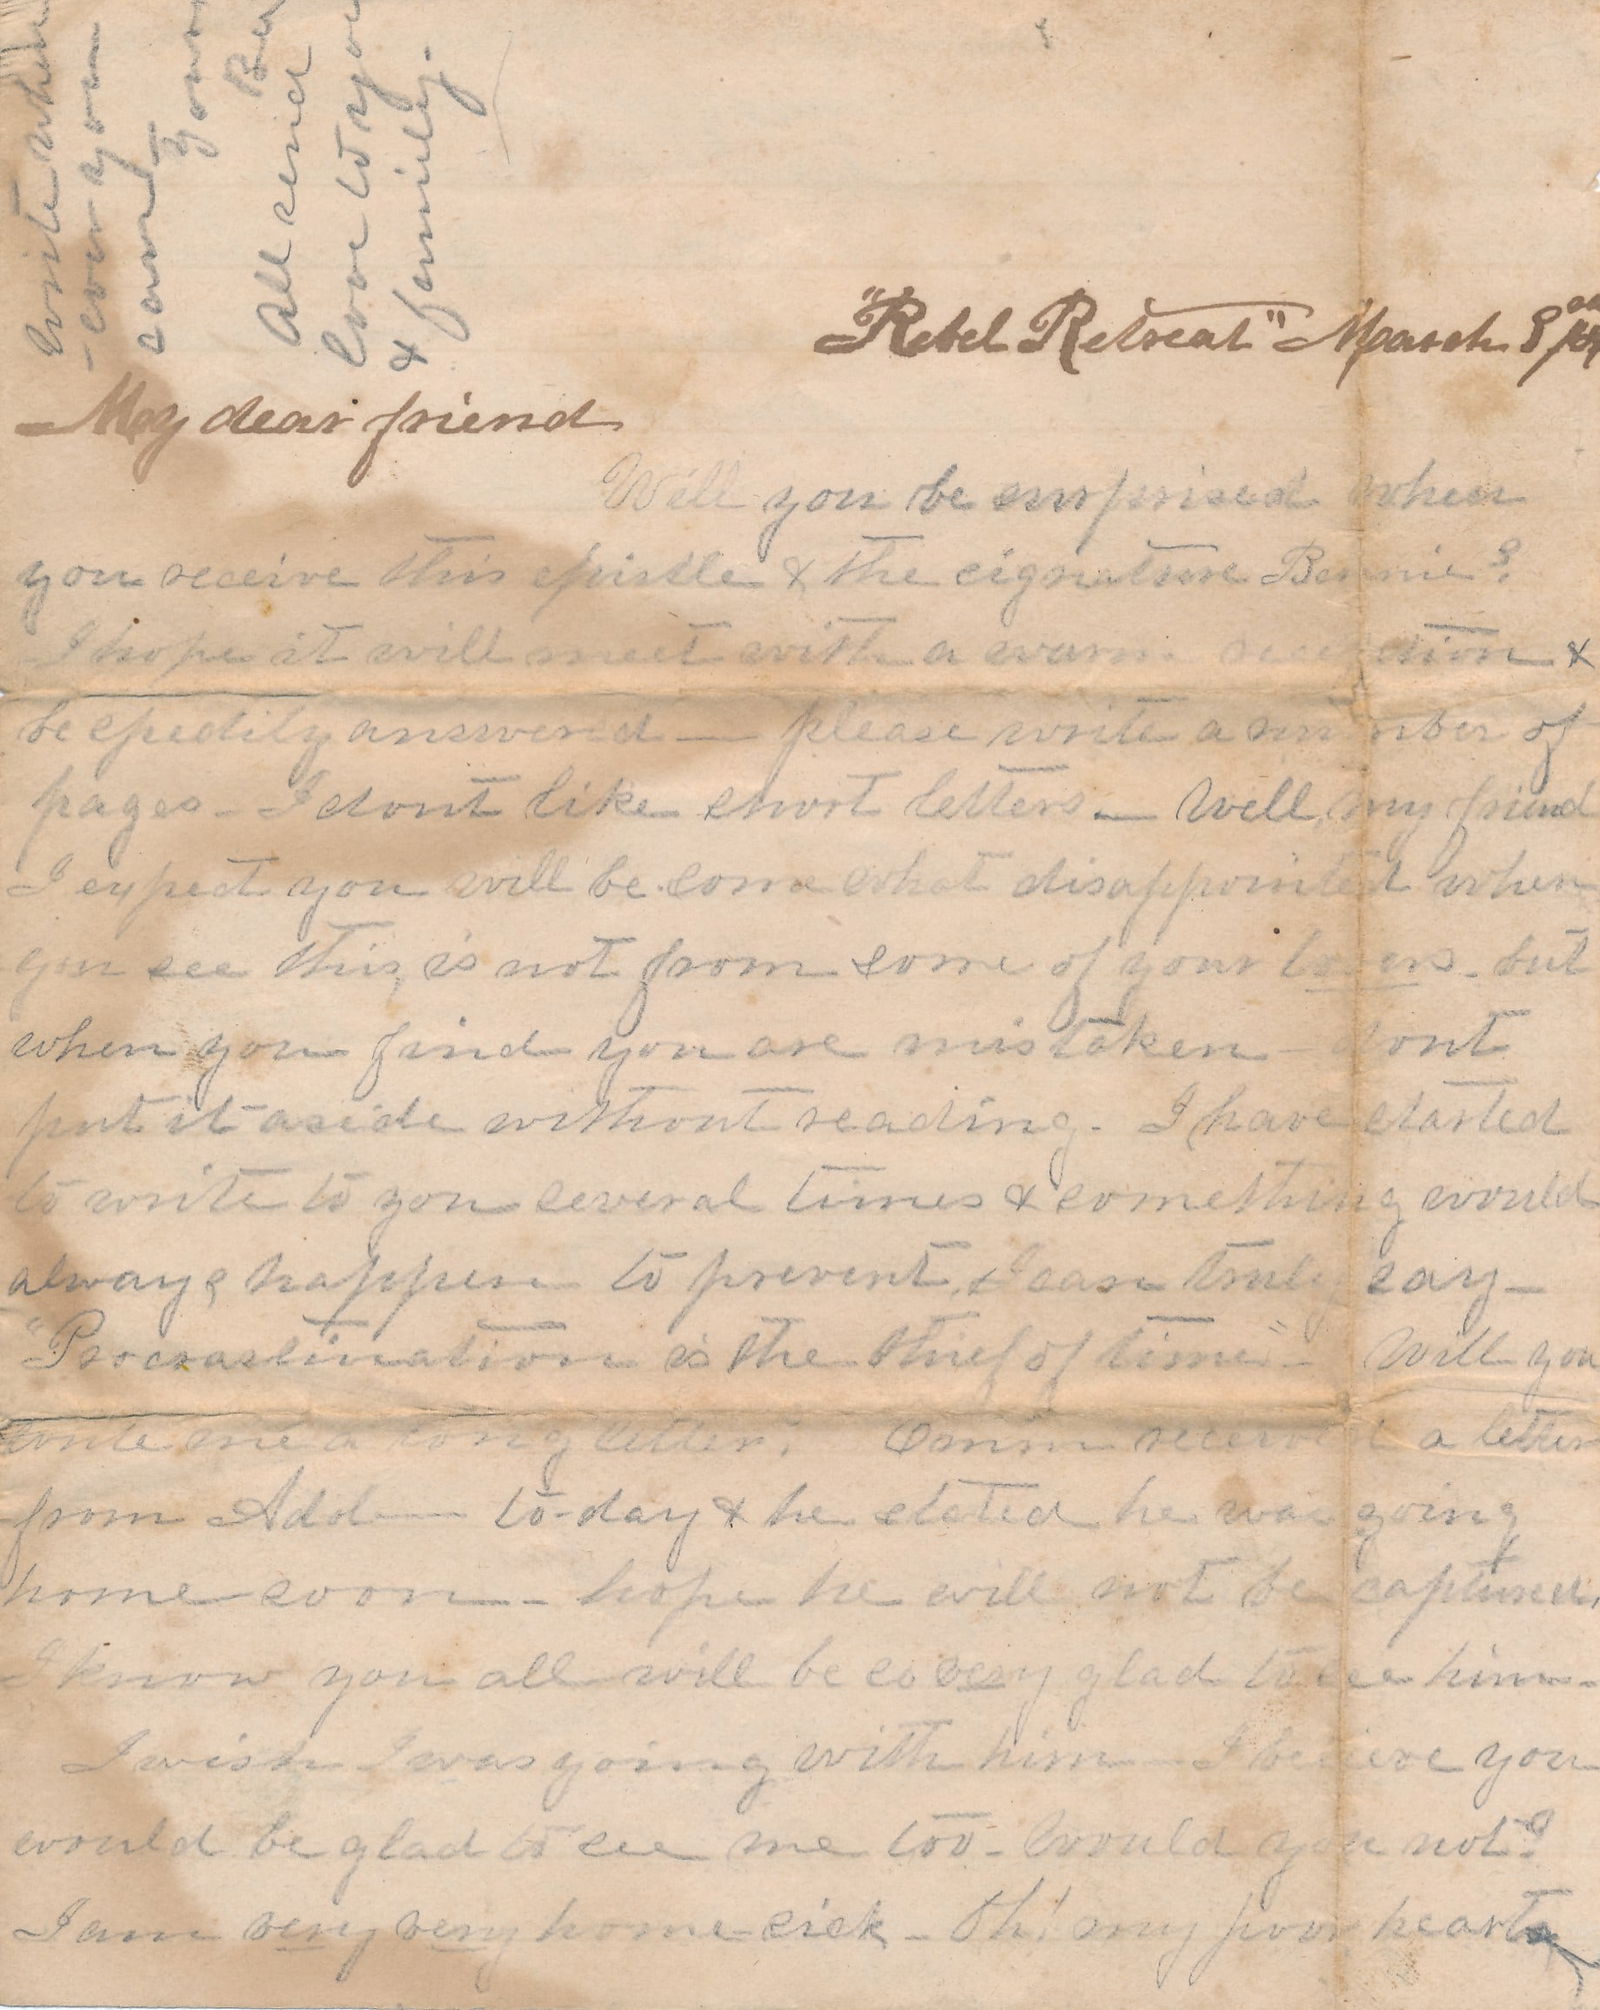 write when
-ever you
can
Your
All send
love to you
& family.
"Rebel Retreat" March 8
My dear friend
Will you be surprised when
you receive this epistle & the signature Bennie?
I hope it will meet with a warm reception &
be speedily answered — please write a number of
pages - I dont like short letters — Well, my friend
I expect you will be somewhat disappointed when
you see this, is not from some of your lovers - but
when you find you are mistaken - dont
put it aside without reading. I have started
to write to you several times & something would
always happen to prevent, I can truly say -
"Procrastination is the thief of time" - Will you
write me a long letter? received a letter
from Add to-day & he stated he was going
home soon - hope he will not be captured,
I know you all will be so very glad to see him -
I wish I was going with him - I believe you
would be glad to see me too - Would you not?
I am very very home-sick - Oh! my poor heart